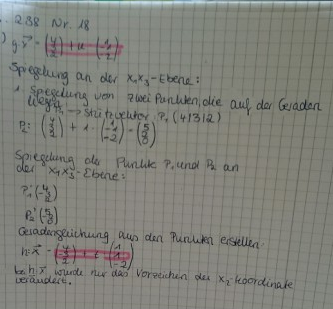 S. 238 Nr. 18
g: x⃗ = (4 3 2) + u · (1 1 -2)
Spiegelung an der x₁x₃-Ebene:
1. Spiegelung von zwei Punkten, die auf der Geraden
liegen P₁ → Stützvektor P₁ (4|3|2)
P₂: (4 3 2) + 1 · (1 1 -2) =
Spiegelung der Punkte P₁ und P₂ an
der x₁x₃-Ebene:
P₁'
P₂'
Geradengleichung aus den Punkten erstellen.
h: x⃗ =
bei h: x⃗ wurde nur das Vorzeichen der x₂-Koordinate
verändert.